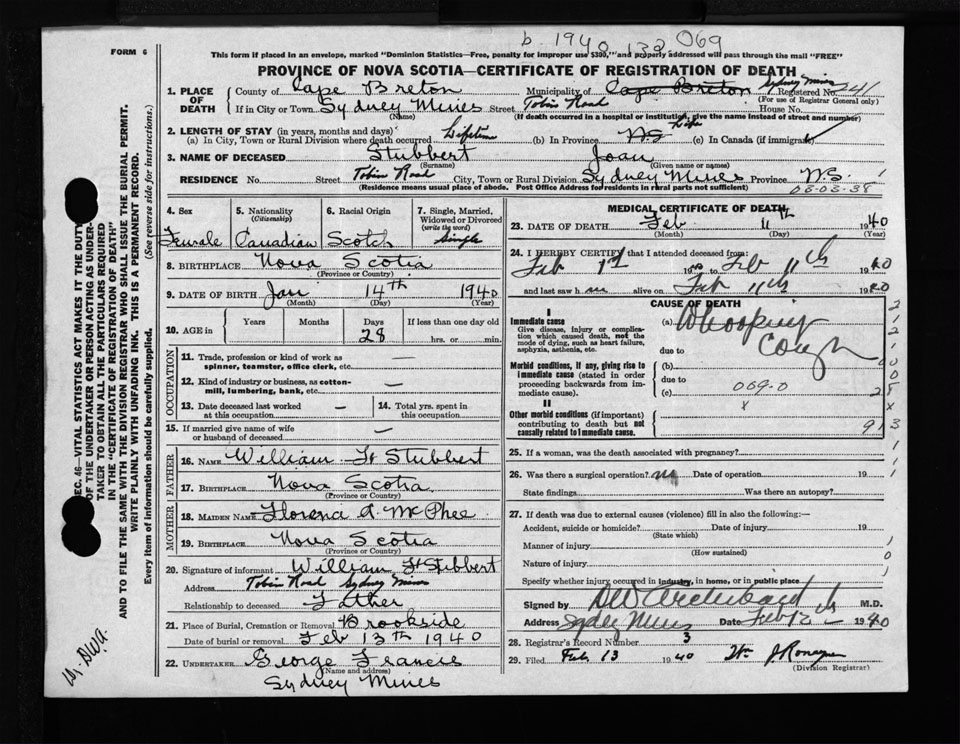 b. 1940 132 069
FORM 6
This form if placed in an envelope, marked "Dominion Statistics—Free, penalty for improper use $300," and properly addressed will pass through the mail "FREE"
PROVINCE OF NOVA SCOTIA—CERTIFICATE OF REGISTRATION OF DEATH
1. PLACE OF DEATH County of Cape Breton Municipality of Cape Breton Sydney Mines Registered No. 241
(For use of Registrar General only)
If in City or Town Sydney Mines Street Tobin Road House No.
(Name) (If death occurred in a hospital or institution, give the name instead of street and number)
2. LENGTH OF STAY (in years, months and days)
(a) In City, Town or Rural Division where death occurred Lifetime (b) In Province N.S. Life (c) In Canada (if immigrant)
3. NAME OF DECEASED Stubbert Joan
(Surname) (Given name or names)
RESIDENCE No. Street Tobin Road City, Town or Rural Division Sydney Mines Province N.S.
(Residence means usual place of abode. Post Office Address for residents in rural parts not sufficient)
03-03-38
4. Sex Female
5. Nationality (Citizenship) Canadian
6. Racial Origin Scotch
7. Single, Married, Widowed or Divorced (write the word) Single
8. BIRTHPLACE Nova Scotia
(Province or Country)
9. DATE OF BIRTH Jan 14th 1940
(Month) (Day) (Year)
10. AGE in Years Months Days 28 If less than one day old hrs. or min.
OCCUPATION
11. Trade, profession or kind of work as spinner, teamster, office clerk, etc. —
12. Kind of industry or business, as cotton-mill, lumbering, bank, etc. —
13. Date deceased last worked at this occupation —
14. Total yrs. spent in this occupation
15. If married give name of wife or husband of deceased —
FATHER
16. NAME William H Stubbert
17. BIRTHPLACE Nova Scotia
(Province or Country)
MOTHER
18. MAIDEN NAME Florence A. McPhee
19. BIRTHPLACE Nova Scotia
(Province or Country)
20. Signature of informant William H Stubbert
Address Tobin Road Sydney Mines
Relationship to deceased Father
21. Place of Burial, Cremation or Removal Brookside
Date of burial or removal Feb 13th 1940
22. UNDERTAKER George Francis
(Name and address)
Sydney Mines
MEDICAL CERTIFICATE OF DEATH
23. DATE OF DEATH Feb 11th 1940
(Month) (Day) (Year)
24. I HEREBY CERTIFY that I attended deceased from
Feb 1st 19 to Feb 11th 1940
and last saw h alive on Feb 11th 1940
CAUSE OF DEATH
I
Immediate cause
Give disease, injury or complication which caused death, not the mode of dying, such as heart failure, asphyxia, asthenia, etc.
(a) Whooping Cough
due to
Morbid conditions, if any, giving rise to immediate cause (stated in order proceeding backwards from immediate cause).
(b)
due to
(c) 069-0
II
x
Other morbid conditions (if important) contributing to death but not causally related to immediate cause.
25. If a woman, was the death associated with pregnancy?
26. Was there a surgical operation? no Date of operation 19
State findings Was there an autopsy?
27. If death was due to external causes (violence) fill in also the following:—
Accident, suicide or homicide? Date of injury 19
(State which)
Manner of injury
(How sustained)
Nature of injury
Specify whether injury occurred in industry, in home, or in public place
Signed by DW Archibald M.D.
Address Sydney Mines Date Feb 12th 1940
28. Registrar's Record Number 3
29. Filed Feb 13 1940 Wm J. Ronayne
(Division Registrar)
SEC. 46—VITAL STATISTICS ACT MAKES IT THE DUTY
OF THE UNDERTAKER OR PERSON ACTING AS UNDER-
TAKER TO OBTAIN ALL THE PARTICULARS REQUIRED
IN THE "CERTIFICATE OF REGISTRATION OF DEATH"
AND TO FILE THE SAME WITH THE DIVISION REGISTRAR WHO SHALL ISSUE THE BURIAL PERMIT.
WRITE PLAINLY WITH UNFADING INK. THIS IS A PERMANENT RECORD.
Every item of information should be carefully supplied. (See reverse side for instructions.)